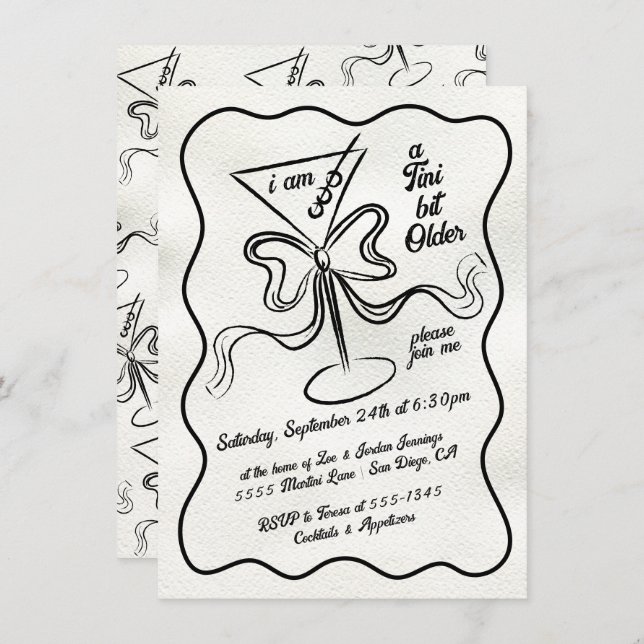 i am
a
Tini
bit
Older
please
join me
Saturday, September 24th at 6:30pm
at the home of Zoe & Jordan Jennings
5555 Martini Lane | San Diego, CA
RSVP to Teresa at 555-1345
Cocktails & Appetizers